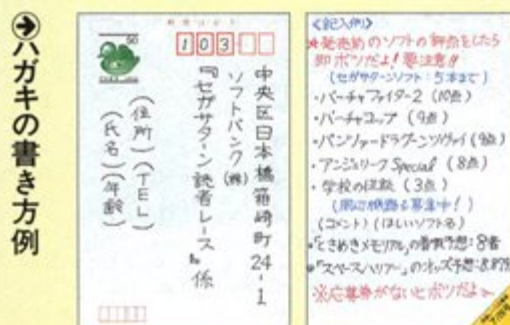 ハガキの書き方例
50
103
中央区日本橋箱崎町24-1
ソフトバンク(株)
『セガサターン読者レース』係
(住所)(TEL)
(氏名)(年齢)
《記入例》
★発売前のソフトの評点をしたら
即ボツだよ!要注意!!
(セガサターンソフト:5本まで)
・バーチャファイター2(10点)
・バーチャコップ(9点)
・パンツァードラグーンツヴァイ(9点)
・アンジェリークSpecial(8点)
・学校の怪談(3点)
(周辺機器も募集中!)
(コメント)(ほしいソフト名)
・「ときめきメモリアル」の着順予想:8番
・「スペースハリアー」のオッズ予想:8.879
※応募券がないとボツだよ〜